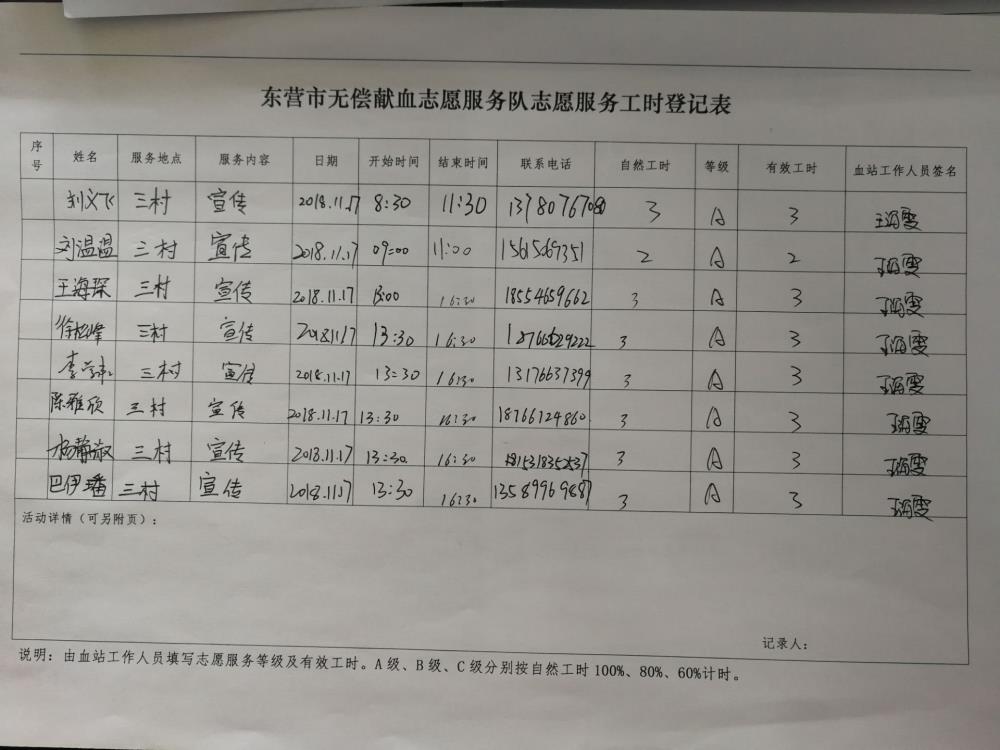 东营市无偿献血志愿服务队志愿服务工时登记表
序号 姓名 服务地点 服务内容 日期 开始时间 结束时间 联系电话 自然工时 等级 有效工时 血站工作人员签名
刘文飞 三村 宣传 2018.11.17 8:30 11:30 13780767080 3 A 3
刘温温 三村 宣传 2018.11.17 09:00 11:00 1561569351 2 A 2
王海琛 三村 宣传 2018.11.17 13:00 16:30 18554659662 3 A 3
三村 宣传 2018.11.17 13:30 16:30 18766629222 3 A 3
三村 宣传 2018.11.17 13:30 16:30 13176637399 3 A 3
陈雅欣 三村 宣传 2018.11.17 13:30 16:30 18766124860 3 A 3
杨静淑 三村 宣传 2018.11.17 13:30 16:30 3 A 3
巴伊璠 三村 宣传 2018.11.17 13:30 16:30 13589969887 3 A 3
活动详情（可另附页）：
记录人：
说明：由血站工作人员填写志愿服务等级及有效工时。A级、B级、C级分别按自然工时100%、80%、60%计时。